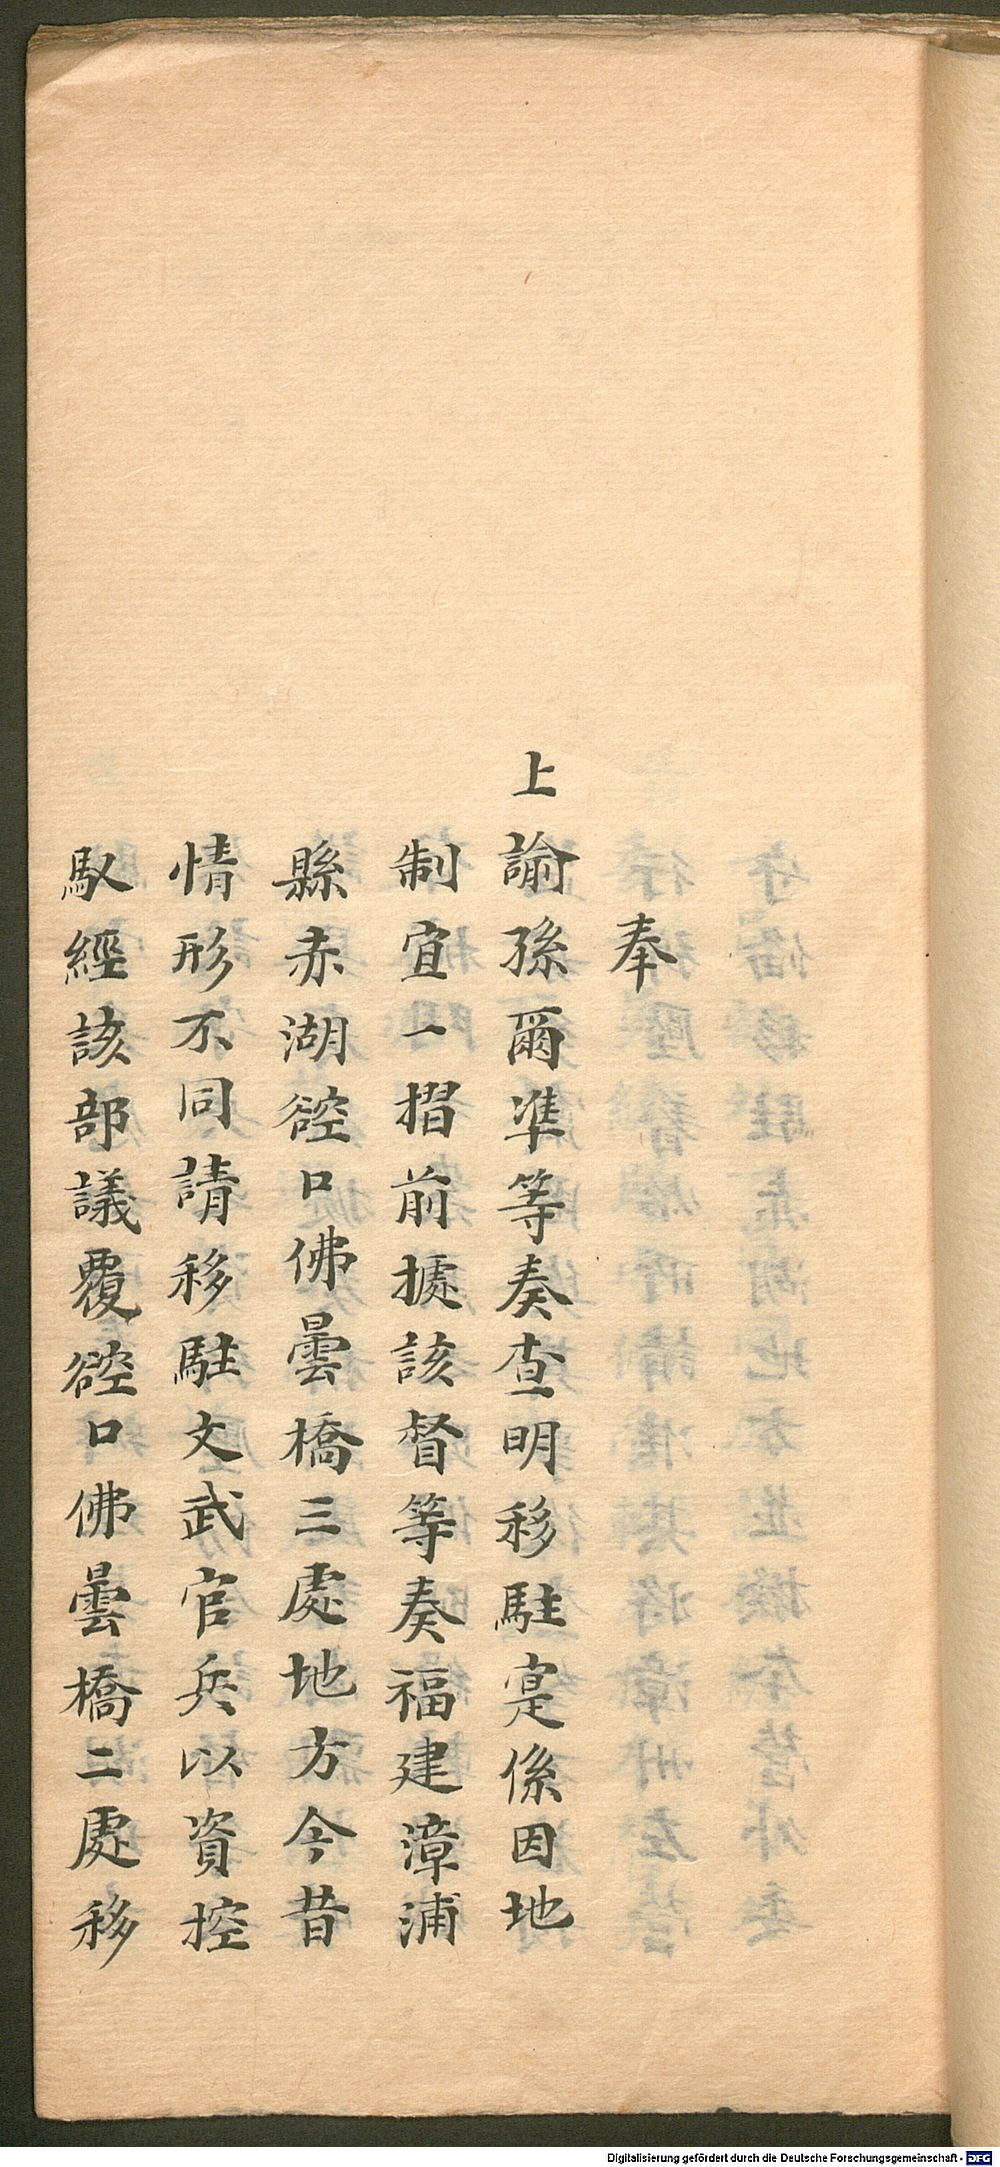 奉
上諭孫爾準等奏查明移駐寔係因地
制宜一摺前㨿該督等奏福建漳浦
縣赤湖硿口佛曇橋三處地方今昔
情形不同請移駐文武官兵以資控
馭經該部議覆硿口佛曇橋二處移
Digitalisierung gefördert durch die Deutsche Forschungsgemeinschaft - DFG